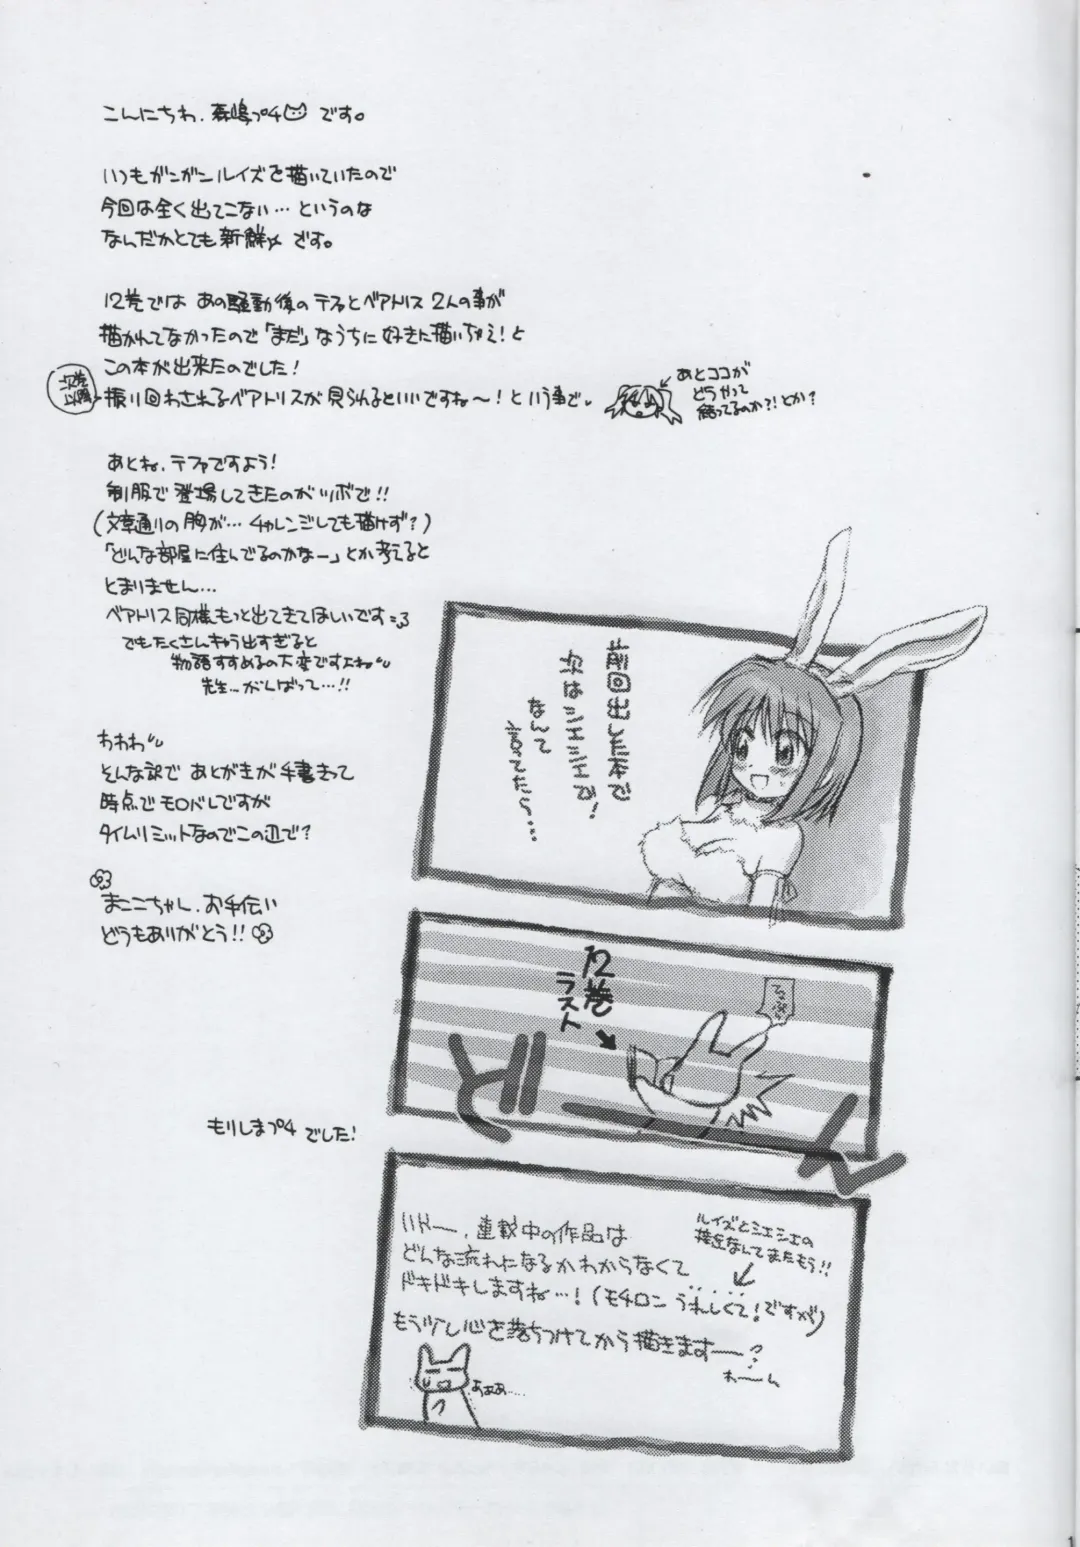 こんにちわ、森嶋プチです。
いつもガンガンルイズを描いていたので
今回は全く出てこない…というのな
なんだかとても新鮮〆です。
12巻では あの騒動後のテファとベアトリス 2人の事が
描かれてなかったので「まだ」なうちに好きに描いちゃえ!と
この本が出来たのでした!
次巻
以降
振り回わされるベアトリスが見られるといいですね〜!という事で。
あとココが
どうやって
結ってるのか?!とか?
あとね、テファですよう!
制服で登場してきたのがツボで!!
(文章通りの胸が…チャレンジしても描けず?)
「どんな部屋に住んでるのかなー」とか考えると
とまりません…
ベアトリス同様もっと出てきてほしいです
でもたくさんキャラ出すぎると
物語すすめるの大変ですよね
先生…がんばって…!!
わわわ
そんな訳で あとがきが手書きって
時点でモロバレですが
タイムリミットなのでこの辺で?
まここちゃん、お手伝い
どうもありがとう!!
もりしまプチ でした!
前回出した本で
次はシエシエで!
なんて
言ってたら…
12巻
ラスト
どーん
ハドー、連載中の作品は
どんな流れになるかわからなくて
ドキドキしますね…!(モチロン うれしくて!ですが)
ルイズとシエシエの
接近なんてまたもう!!
もう少し心を落ちつけてから描きますー?
わーん
あああ……
1